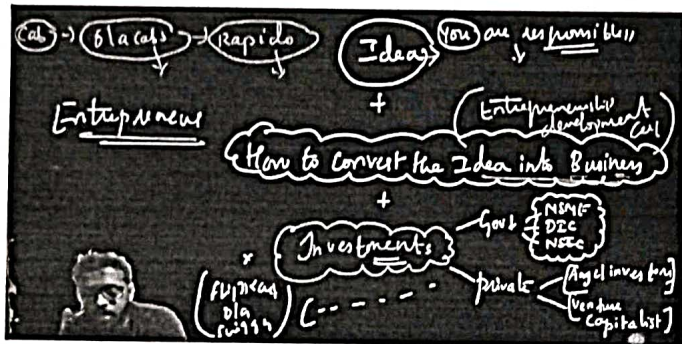 Cab → Ola cabs → Rapido
Idea → You are responsible
+
Entrepreneur
(Entrepreneurship development Cell
How to convert the Idea into Business
+
Investments
Govt
MSME
DIC
NSIC
private
[Angel investors]
[Venture Capitalist]
Flipkart
Ola
Swiggy